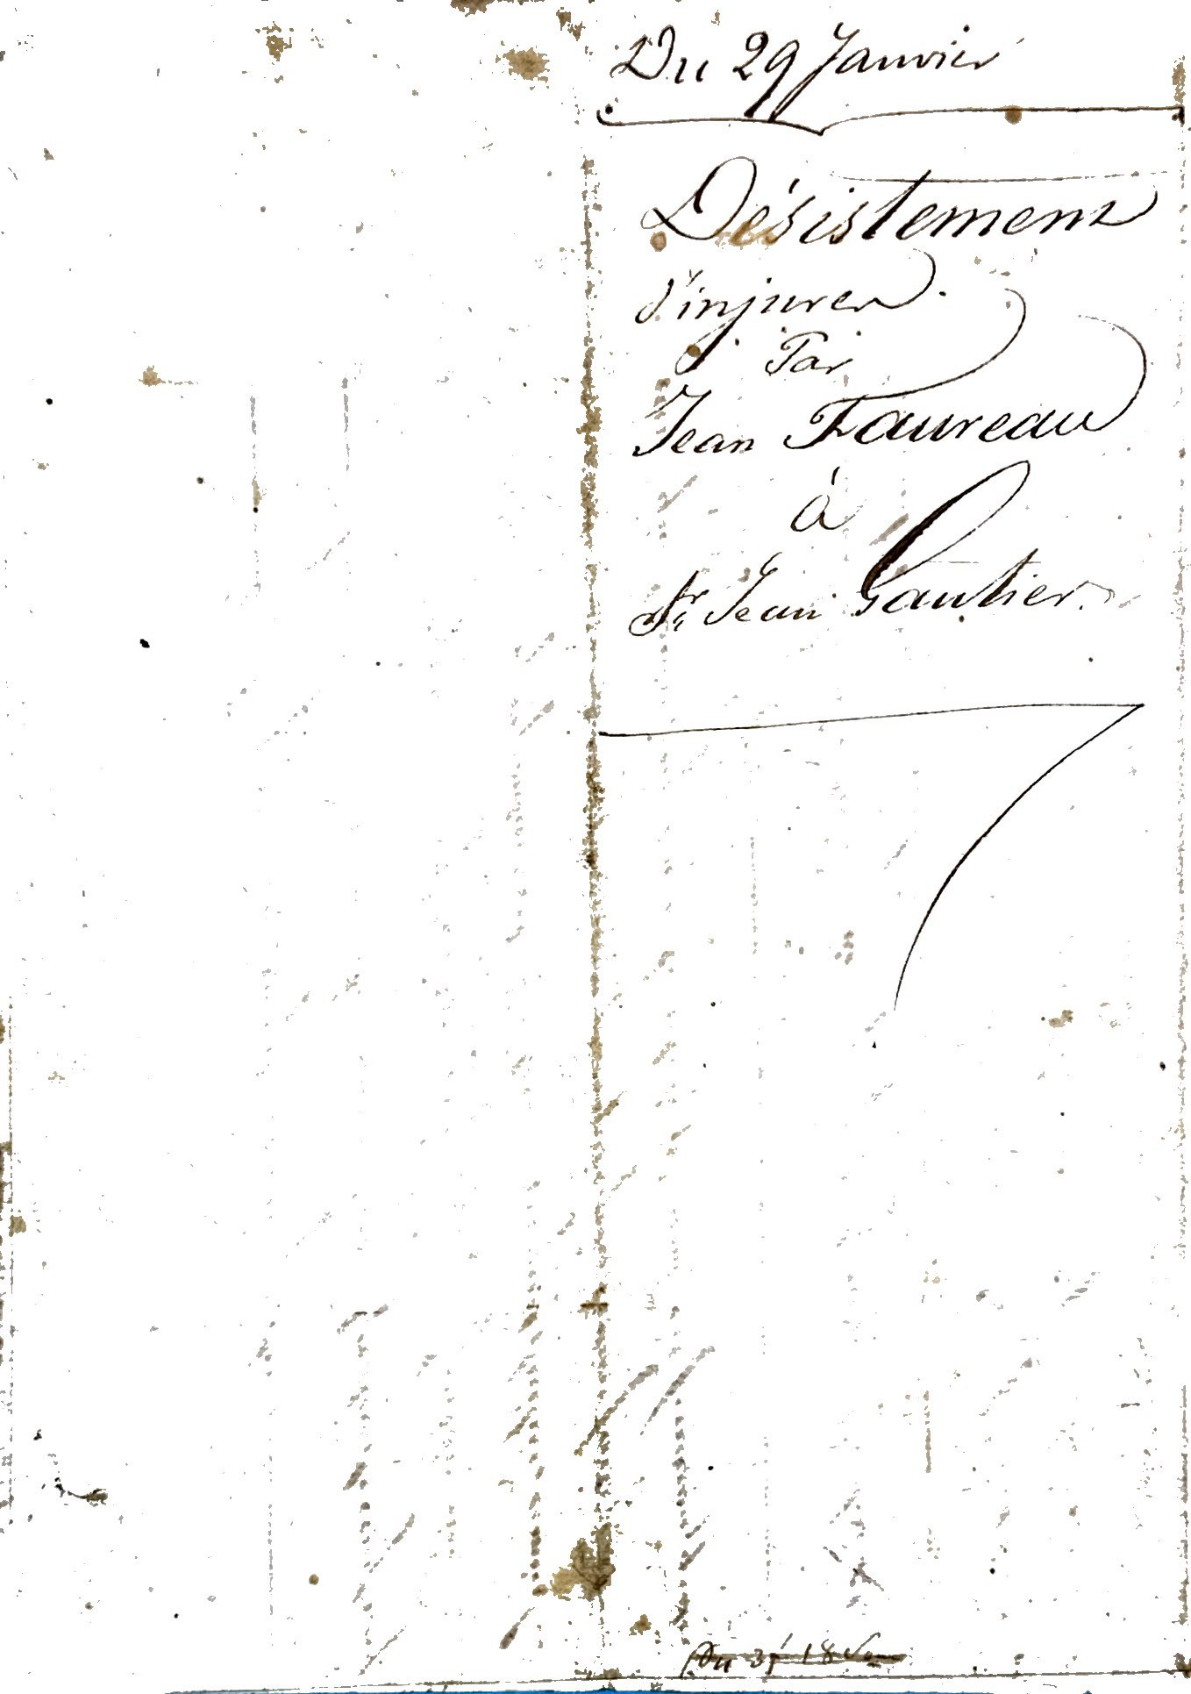 Du 29 Janvier
Désistement
d'injures.
Par
Jean Faureau
à
Sr. Jean Gautier.
Du